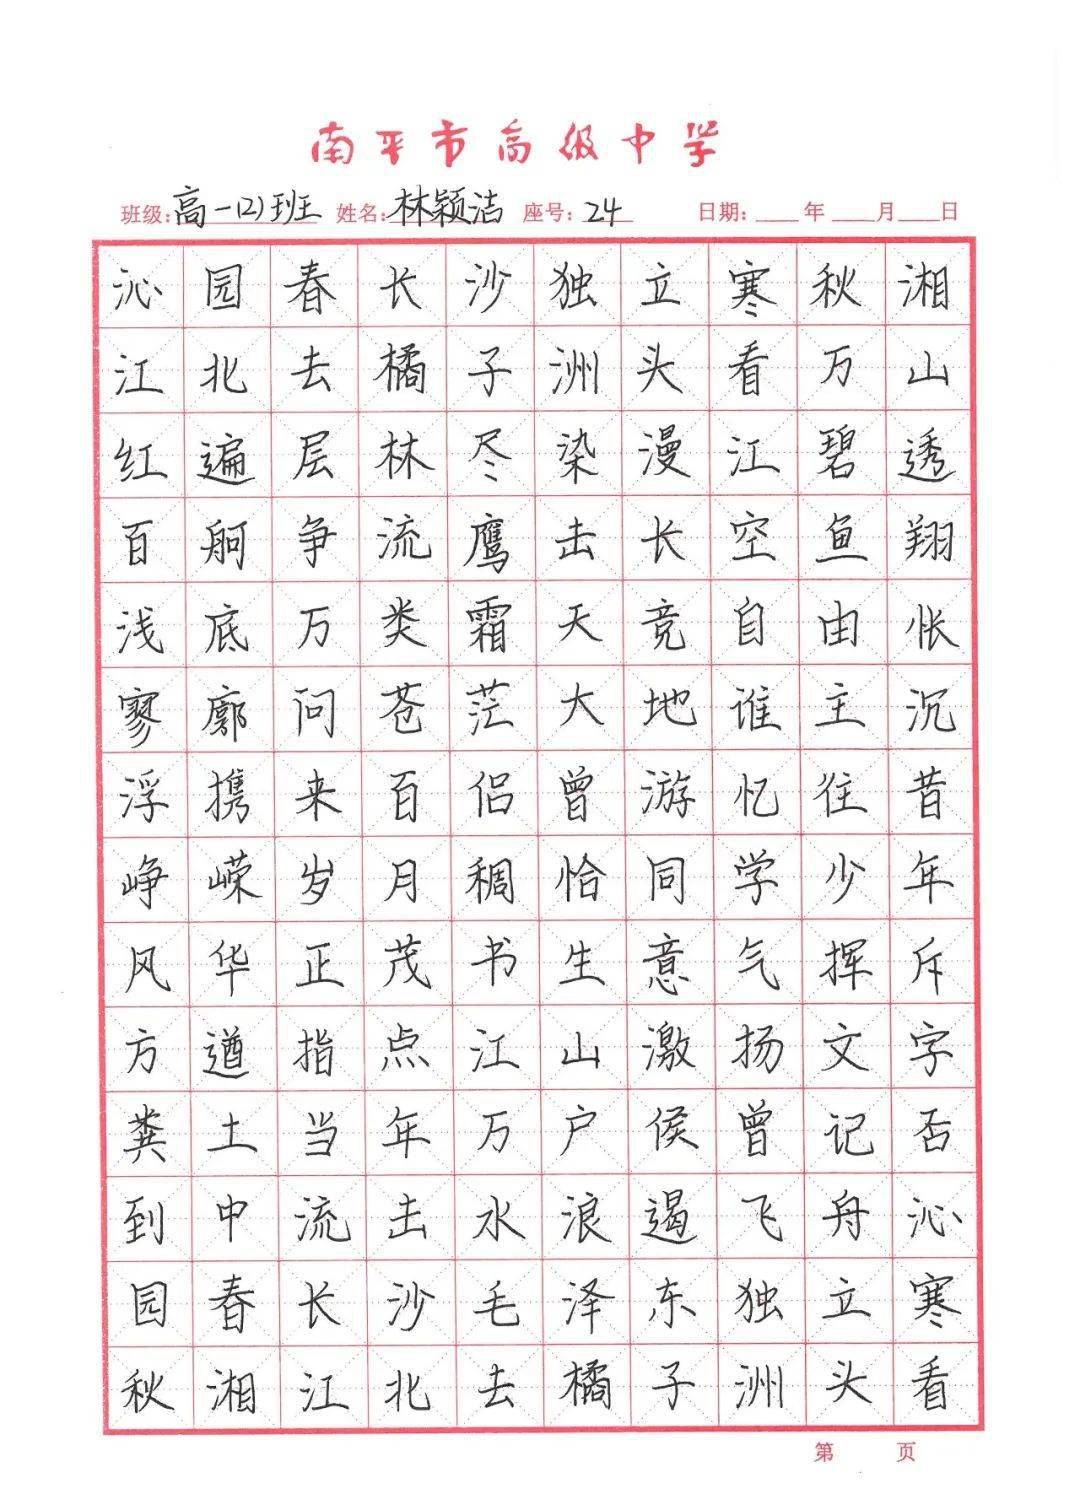 南平市高级中学
班级:高一(2)班 姓名:林颖洁 座号:24 日期:____年____月____日
沁园春长沙独立寒秋湘
江北去橘子洲头看万山
红遍层林尽染漫江碧透
百舸争流鹰击长空鱼翔
浅底万类霜天竞自由怅
寥廓问苍茫大地谁主沉
浮携来百侣曾游忆往昔
峥嵘岁月稠恰同学少年
风华正茂书生意气挥斥
方遒指点江山激扬文字
粪土当年万户侯曾记否
到中流击水浪遏飞舟沁
园春长沙毛泽东独立寒
秋湘江北去橘子洲头看
第 页